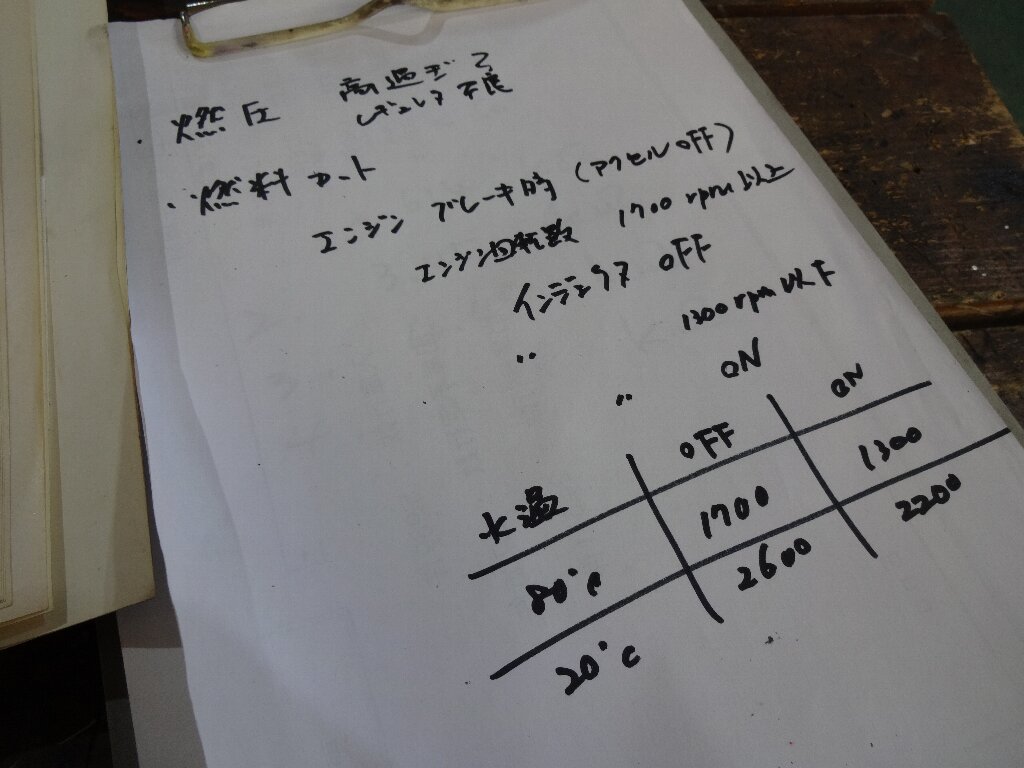 ・燃圧 高過ぎる
レギュレタ不良
・燃料カット
エンジンブレーキ時(アクセルOFF)
エンジン回転数 1700rpm以上
インジェクタ OFF
〃 1300rpm以下
〃 ON
水温 OFF ON
80℃ 1700 1300
20℃ 2600 2200